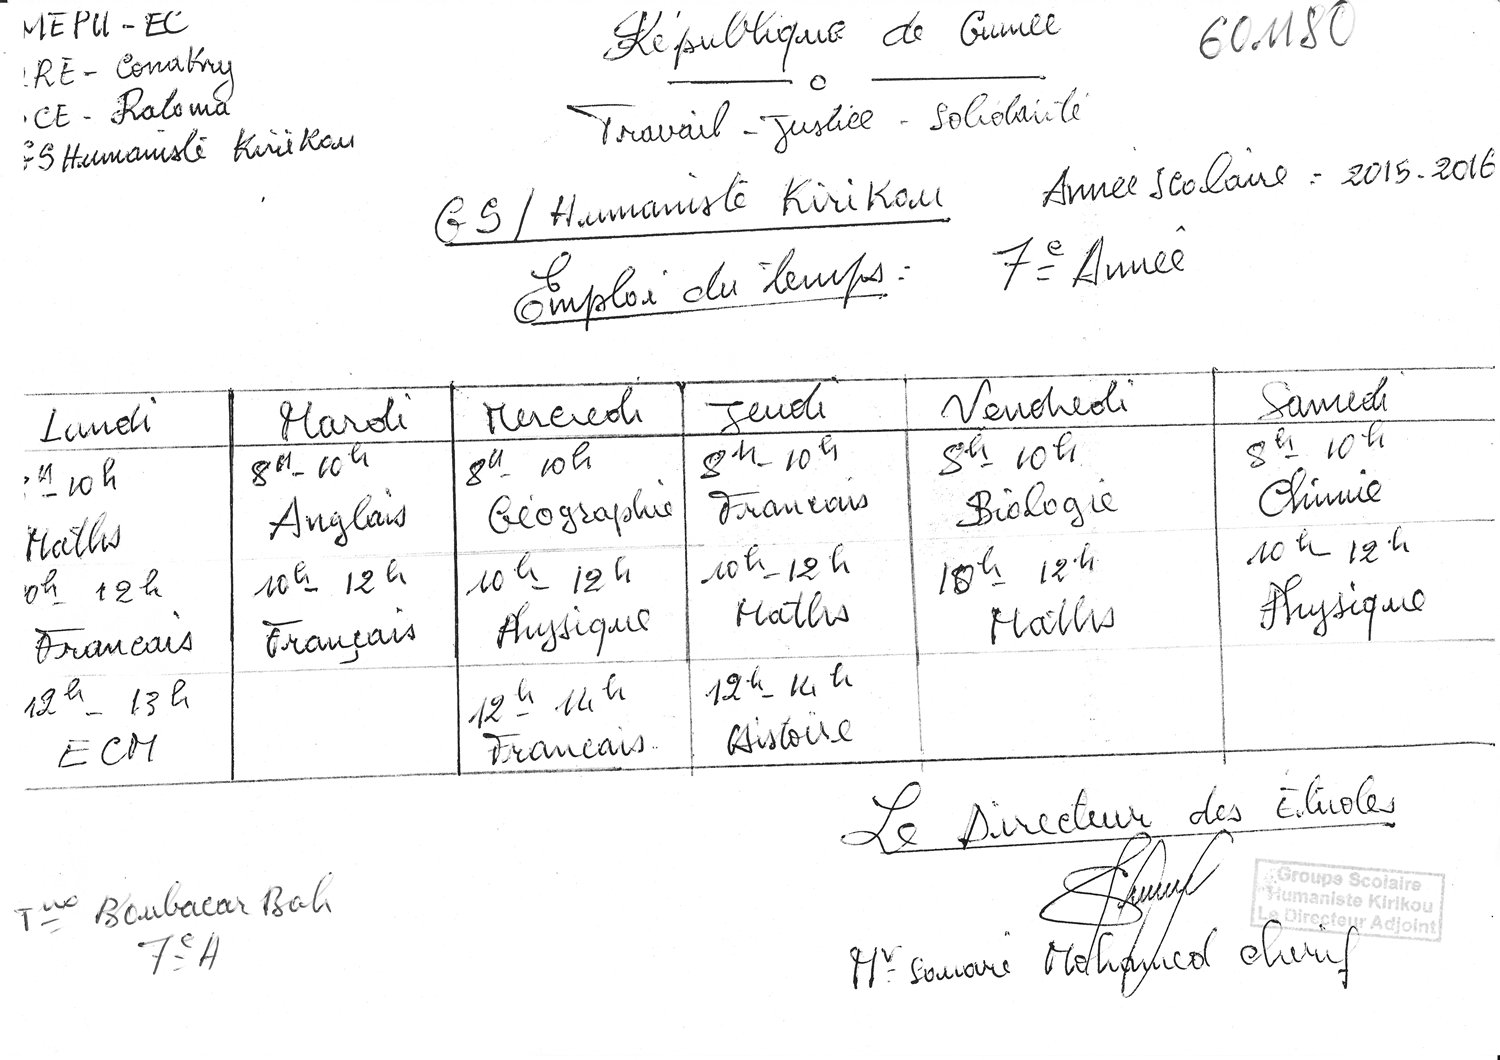 MEPU-EC
RE-Conakry
CE-Ratoma
GS Humaniste Kirikou
République de Guinée
Travail-Justice-Solidarité
601180
GS/Humaniste Kirikou
Année Scolaire: 2015-2016
Emploi du temps: 7e Année
Lundi Mardi Mercredi Jeudi Vendredi Samedi
h-10h 8h-10h 8h-10h 8h-10h 8h-10h 8h-10h
Maths Anglais Géographie Francais Biologie Chimie
0h-12h 10h-12h 10h-12h 10h-12h 10h-12h 10h-12h
Francais Français Physique Maths Maths Physique
12h-13h 12h-14h 12h-14h
ECM Francais Histoire
Le Directeur des Etudes
Groupe Scolaire
Humaniste Kirikou
Le Directeur Adjoint
Mr Mohamed Cherif
Boubacar Bah
7e A